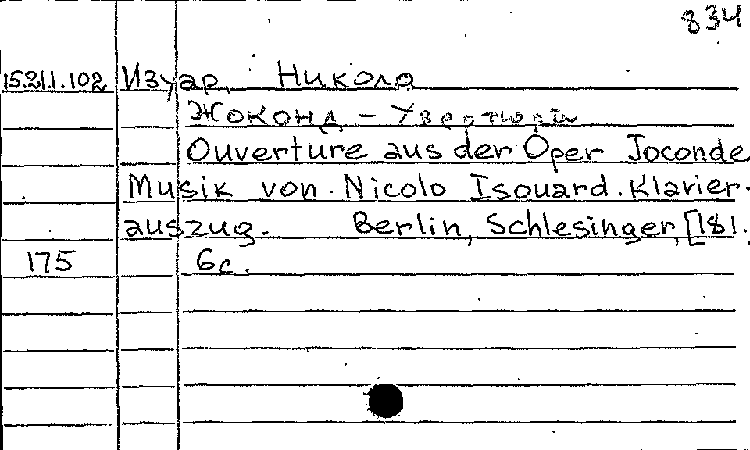 834
15.211.102 Изуар, Николо
Жоконд - Увертюра
Ouverture aus der Oper Joconde
Musik von Nicolo Isouard. Klavier-
auszug. Berlin, Schlesinger, [181.
175 6c.